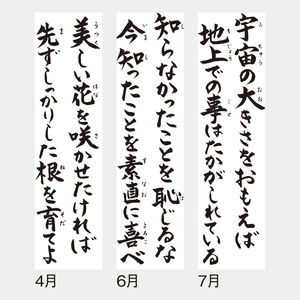 宇宙の大きさをおもえば
地上での事はたかがしれている
7月
知らなかったことを恥じるな
今知ったことを素直に喜べ
6月
美しい花を咲かせたければ
先ずしっかりした根を育てよ
4月